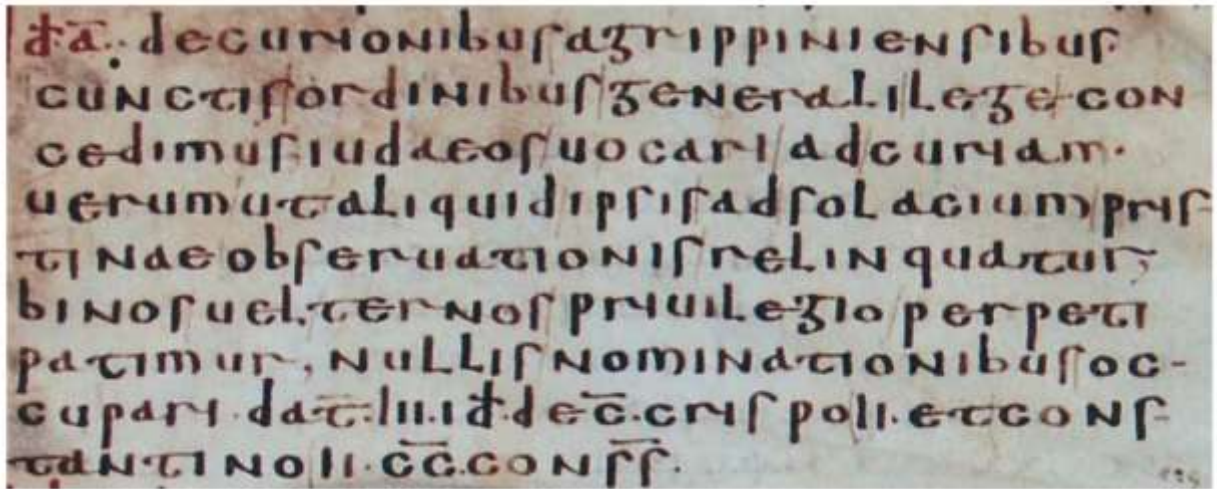 đ ā. decurionibus agrippiniensibus.
cunctis ordinibus generali lege con
cedimus iudaeos uocari ad curiam.
uerum ut aliquid ipsis ad solacium pris-
tinae obseruationis relinquatur;
binos uel ternos priuilegio perpeti
patimur, nullis nominationibus oc-
cupari. dat̄. III. iđ. dec̄. crispo II. et cons-
tantino II. c̄c̄. cons̄s̄.